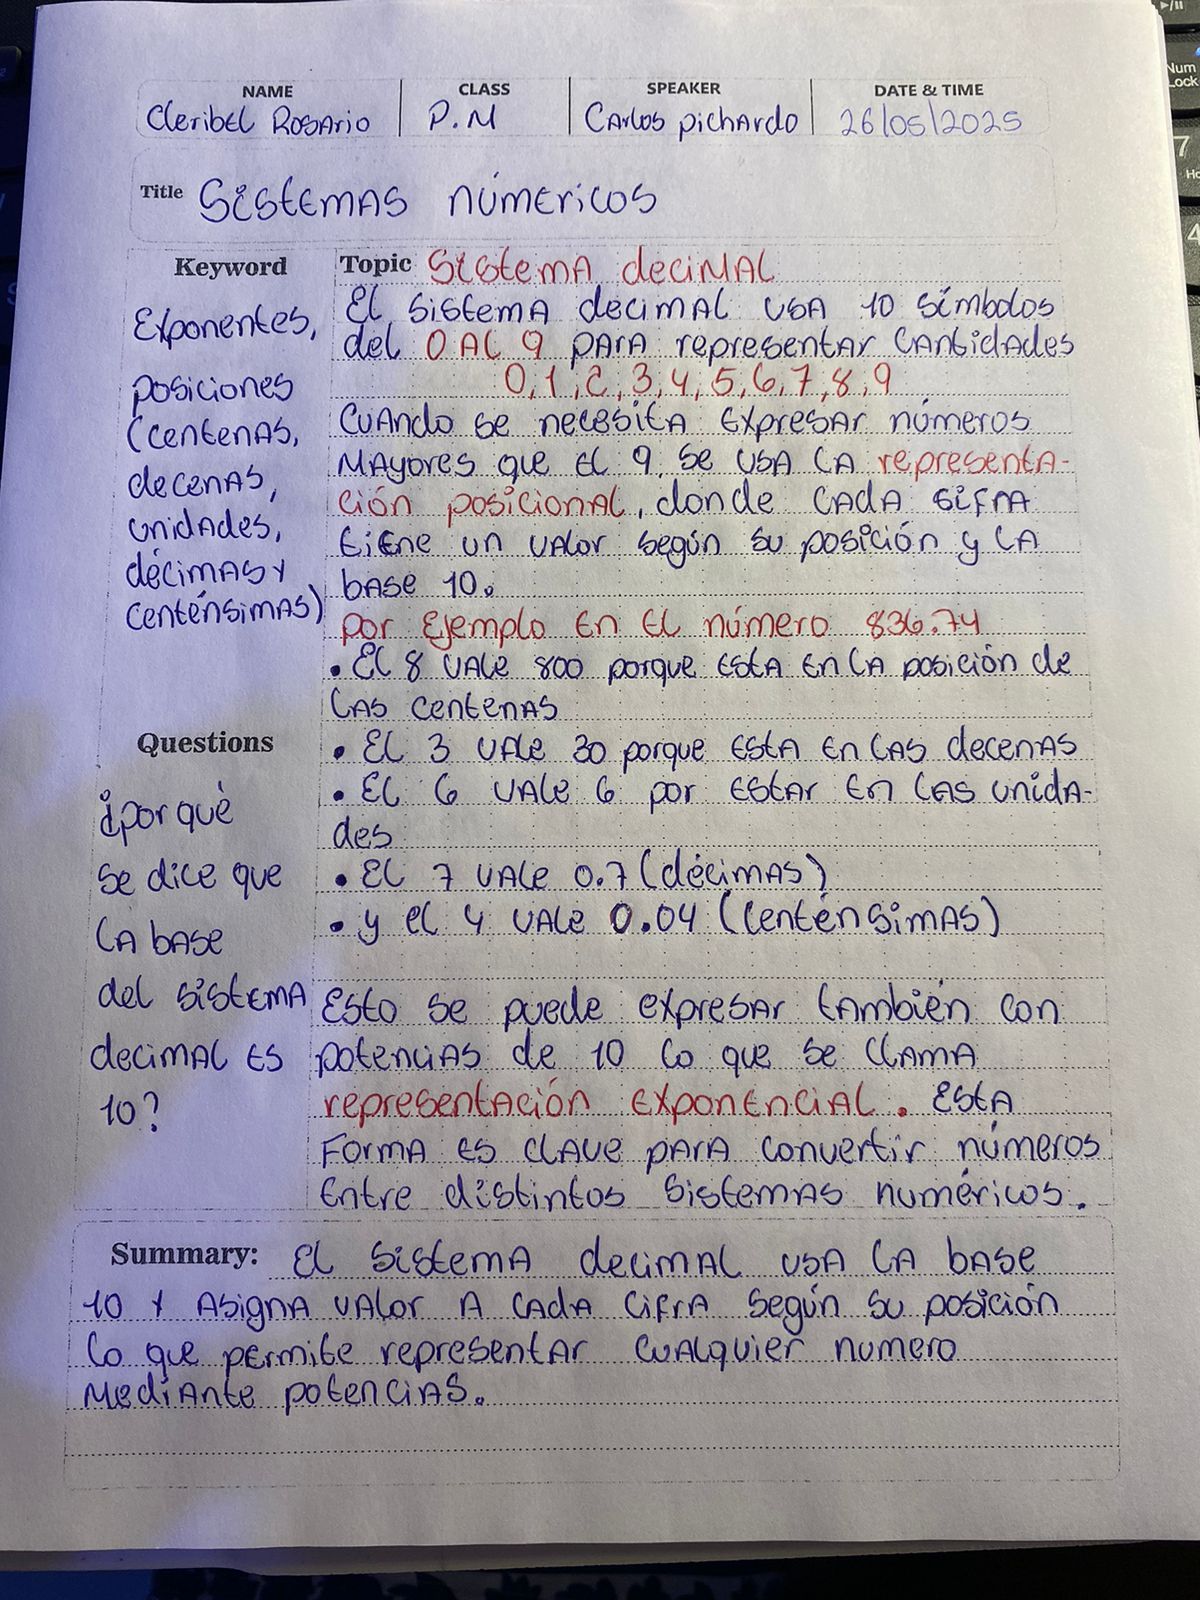 NAME CLASS SPEAKER DATE & TIME
Cleribel Rosario P.M Carlos pichardo 26/05/2025
Title Sistemas númericos
Keyword
Exponentes,
posiciones
(centenas,
decenas,
unidades,
décimas y
centénsimas)
Questions
¿por què
se dice que
la base
del sistema
decimal es
10?
Topic Sistema decimal
El sistema decimal usa 10 símbolos
del 0 al 9 para representar cantidades
0,1,2,3,4,5,6,7,8,9
Cuando se necesita expresar números
mayores que el 9, se usa la representa-
ción posicional, donde cada sifra
tiene un valor según su posición y la
base 10.
por ejemplo en el número 836.74
• El 8 vale 800 porque esta en la posición de
las centenas
• El 3 vale 30 porque esta en las decenas
• El 6 vale 6 por estar en las unida-
des
• El 7 vale 0.7 (décimas)
• y el 4 vale 0.04 (centénsimas)
Esto se puede expresar también con
potencias de 10 lo que se llama
representación exponencial. Esta
forma es clave para convertir números
entre distintos sistemas numéricos.
Summary: El sistema decimal usa la base
10 y asigna valor a cada cifra según su posición
lo que permite representar cualquier numero
mediante potencias.
Num
Lock
7
4